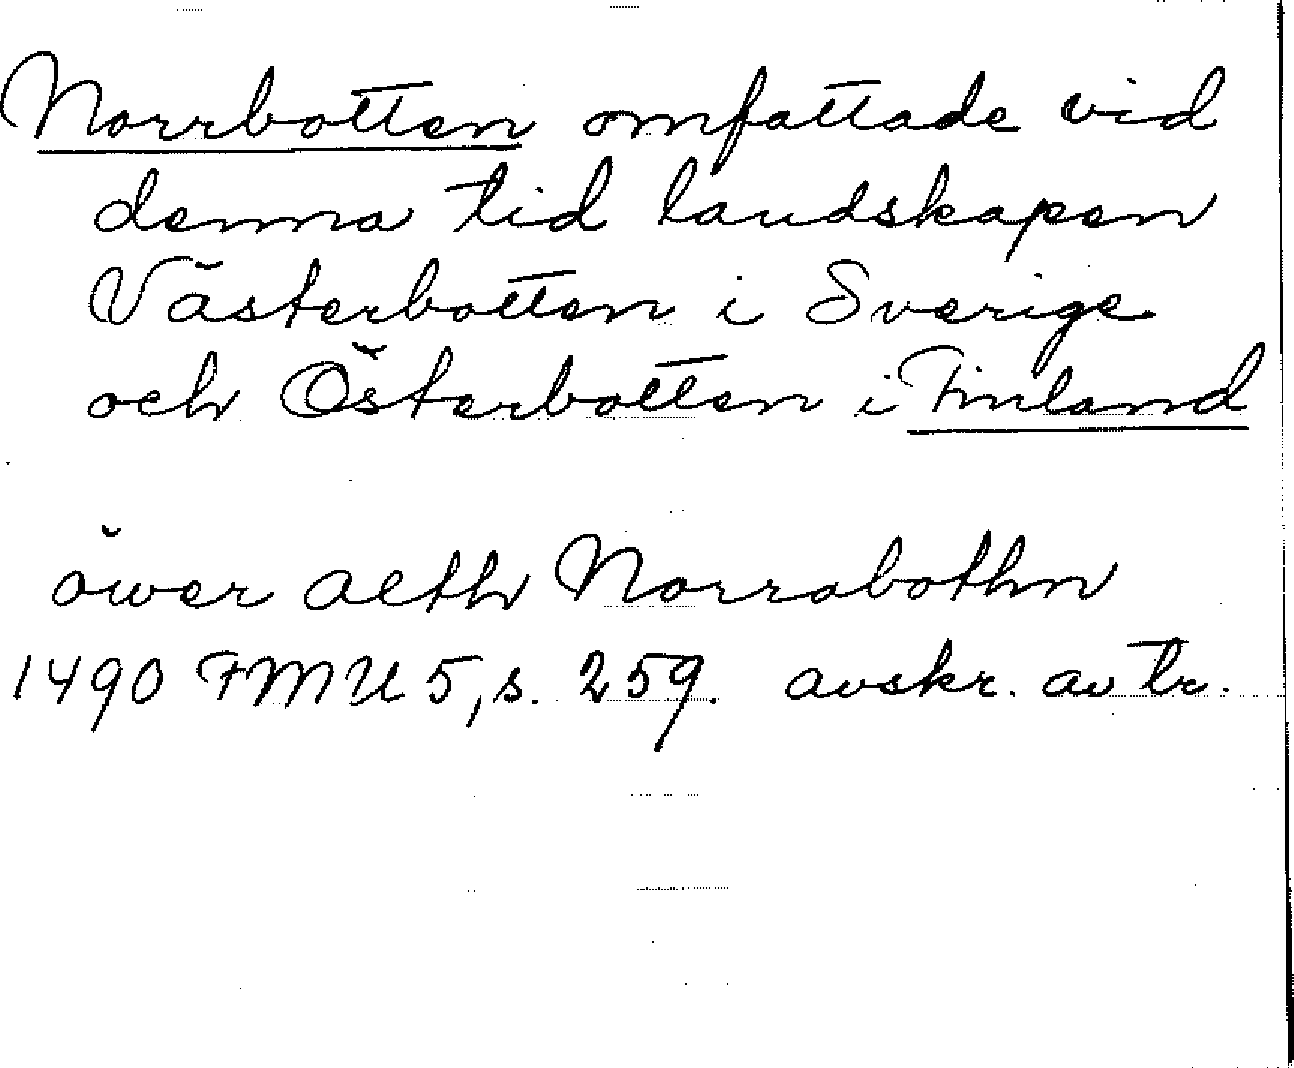 Norrbotten omfattade vid
denna tid landskapen
Västerbotten i Sverige
och Österbotten i Finland
öwer alth Norrabothn
1490 FMU 5, s. 259. avskr. av tr.